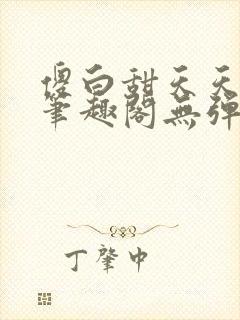 傻白甜天天
筆趣閣無彈
丁肇中